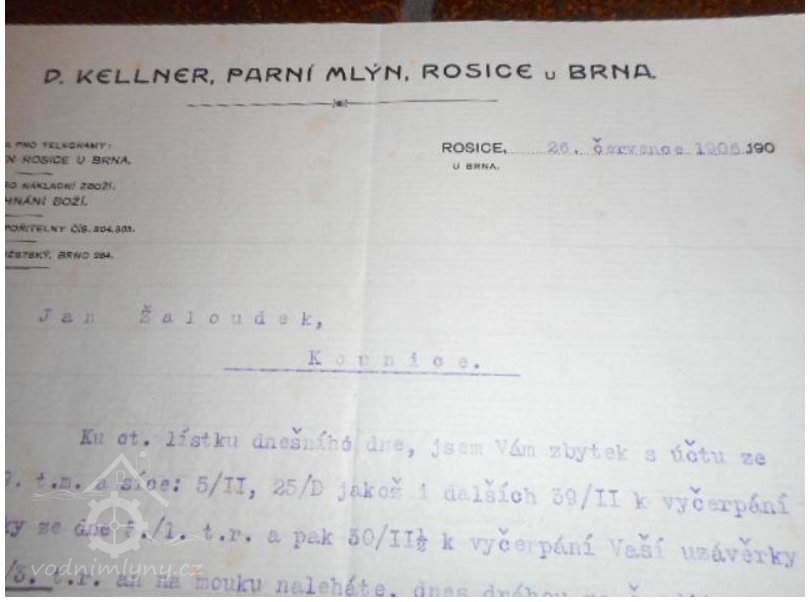 D. KELLNER, PARNÍ MLÝN, ROSICE u BRNA.
PRO TELEGRAMY:
ROSICE U BRNA.
NÁKLADNÍ ZBOŽÍ:
ČÍS. 304.303.
BRNO 284.
ROSICE, 26. července 1906 190
U BRNA.
Jan Žaloudek,
Kounice.
Ku ct. lístku dnešního dne, jsem Vám zbytek s účtu ze
t.m. a síce: 5/II, 25/D jakož i dalších 39/II k vyčerpání
ze dne 5./1. t.r. a pak 30/II½ k vyčerpání Vaší uzávěrky
/3. t.r. an na mouku naleháte, dnes dráhou
vodnimlyny.cz